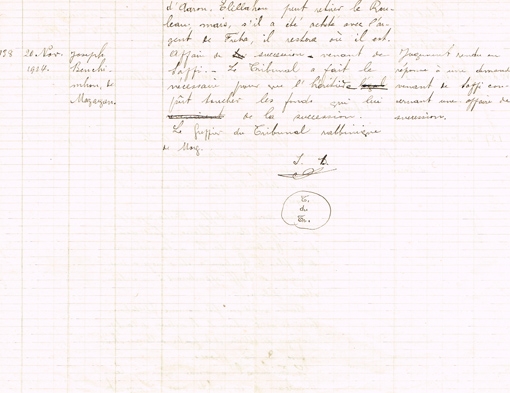 d'Aaron. Elillahou peut retirer le Rou-
leau, mais, s'il a été acheté avec l'ar-
gent de Fraha, il restera où il est.
138
20 Nov.
1924.
Joseph
Benchi-
mhon, de
Mazagan.
Affaire de succession venant de
Saffi. — Le Tribunal a fait le
nécessaire pour que l'héritière
pût toucher les fonds qui lui
de la succession.
Le Greffier du Tribunal rabbinique
de Maz.
Jugement rendu en
réponse à une demande
venant de Saffi con-
cernant une affaire de
succession.
S. L.
T.
du
Tr.